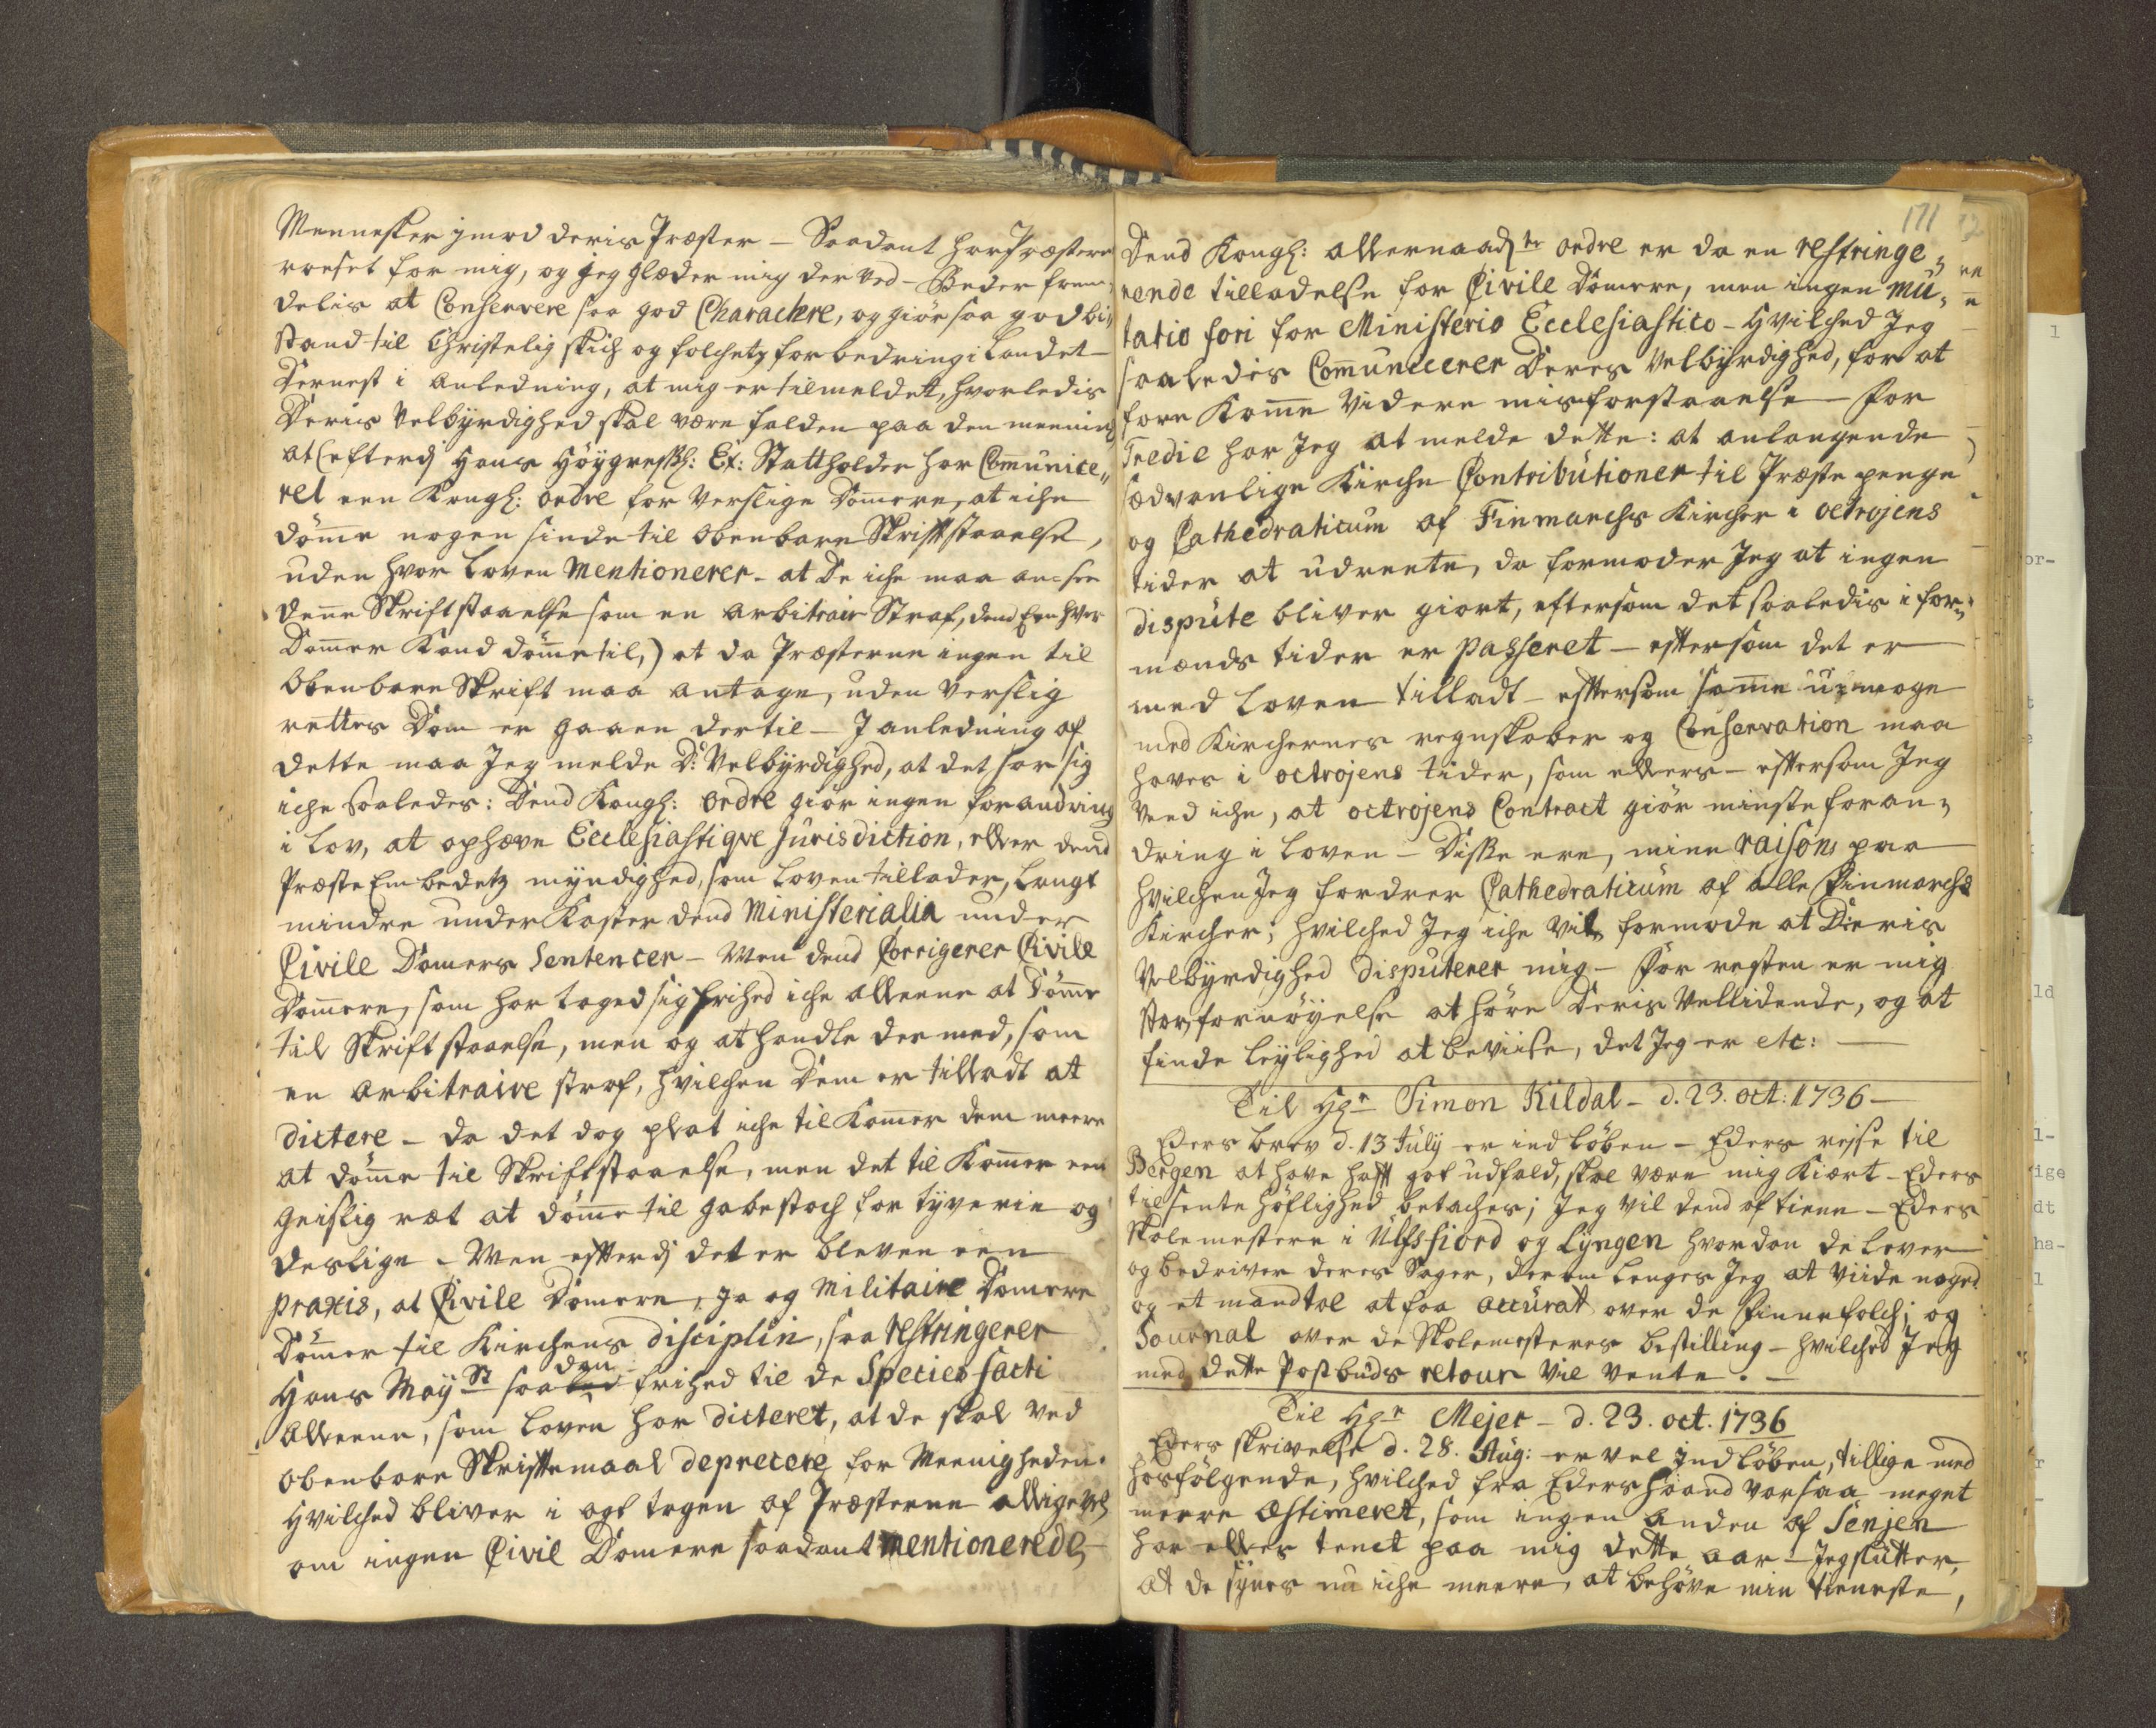 Mennesker imod deris Præster – Saadant har Præsterne
roeset for mig, og jeg glæder mig der ved – Beder frem„
delis at Conservere saa god Charactere, og giör saa god bi„
stand til Christelig skich og folchetz forbedring i Landet –
Dernest i anledning, at mig er tilmeldet, hvorledis
Deris Velbÿrdighed skal være falden paa den meening
at (efterdj Hans Höÿgrefl: Ex: Stattholder har Communice„
ret een Kongl: ordre for Verslige Dommere, at iche
dömme nogen sinde til obenbare Skriftstaaelse,
uden hvor Loven Mentionerer – at De iche maa an=see
denne Skriftstaaelse som en arbitrair Straf, dend Een hver
Dommer Kand dömme til,) at da Præsterne ingen til
obenbare Skrift maa antage, uden Verslig
rettes Dom er gaaen dertil – I anledning af
dette maa Jeg melde D: Velbÿrdighed, at det har sig
iche saaledes: Dend Kongl: ordre giör ingen forandring
i Lov, at ophæve Ecclesiastiqve Jurisdiction, eller dend
Præste Embedetz mÿndighed, som Loven tillader, Langt
mindre underkaster dend Ministerialia under
Civile Domers Sentencer – Men dend Corrigerer Civile
Dommere, som har taged sig frihed iche alleene at Dömme
til Skriftstaaelse, men og at handle der med, som
en arbitraire straf, hvilchen Dem er tilladt at
dictere – da det dog plat iche tilkommer dem meere
at dömme til Skriftstaaelse, men det tilkommer een
Geistlig ræt at dömme til gabestoch for tÿverie og
deslige – Men efterdj det er bleven een
praxis, at Civile Dommere, ja og Militaire Dommere
Dömmer til Kirchens disciplin, saa restringerer
Hans Maÿst saa den frihed til de Species facti
alleene, som Loven har dicteret, at de skal ved
obenbare Skriftemaal deprecere for Meenigheden.
Hvilched bliver i agt tagen af Præsterne alligevel
om ingen Civil Domere saadant mentionerede –
171
Dend Kongl: allernaadste ordre er da en restringe„
rende tilladelse for Civile Dömere, men ingen mu„
tatio fori for Ministerio Ecclesiastico – Hvilched Jeg
saaledes Communicerer Deres Velbÿrdighed, for at
fore Komme Videre misforstaaelse – For
Tredie har Jeg at melde dette: at anlangende
sædvanlige Kirche Contributioner til Præste penge
og Cathedraticum af Finmarchs Kircher i octrojens
tider at udreete, da formoder Jeg at ingen
dispute bliver giort, eftersom det saaledis i for„
mænds tider er passeret – eftersom det er
med Loven tilladt – eftersom samme
med Kirchernes regnskaber og Conservation maa
haves i octrojens tider, som ellers – eftersom Jeg
Veed iche, at octrojens Contract giör minste foran„
dring i Loven – Disse ere, mine raisons paa
hvilchen Jeg fordrer Cathedraticum af alle Finmarchs
Kircher; hvilched Jeg iche vil formode at Deris
Velbÿrdighed disputerer mig – For resten er mig
stor fornöÿelse at höre Deris Vellidende, og at
finde Leÿlighed at beviise, det Jeg er etc: –
Til Hr Simon Kildal – d. 23. oct: 1736 –
Eders brev d. 13 Julÿ er indlöben – Eders rejse til
Bergen at have haft got udfald, skal være mig Kiært – Eders
tilsente höflighed betaches; Jeg vil dend aftiene – Eders
Skolemestere i Ulfsfiord og Lÿngen hvordan de Lever
og bedriver deres Sager, derom Lenges Jeg at viide noged
og et mandtal at faa accurat over de Finnefolch; og
Journal over de Skolemesteres bestilling – hvilched Jeg
med dette Postbuds retour vil vente. –
Til Hr Mejer – d. 23. oct. 1736
Eders skrivelse d. 28. Aug: er vel indlöben, tillige med
hosfölgende, hvilched fra Eders haand var saa meget
meere æstimeret, som ingen anden af Senjen
har ellers tenct paa mig dette aar – Jeg slutter,
at de sÿnes nu iche meere, at behöve min tieneste,